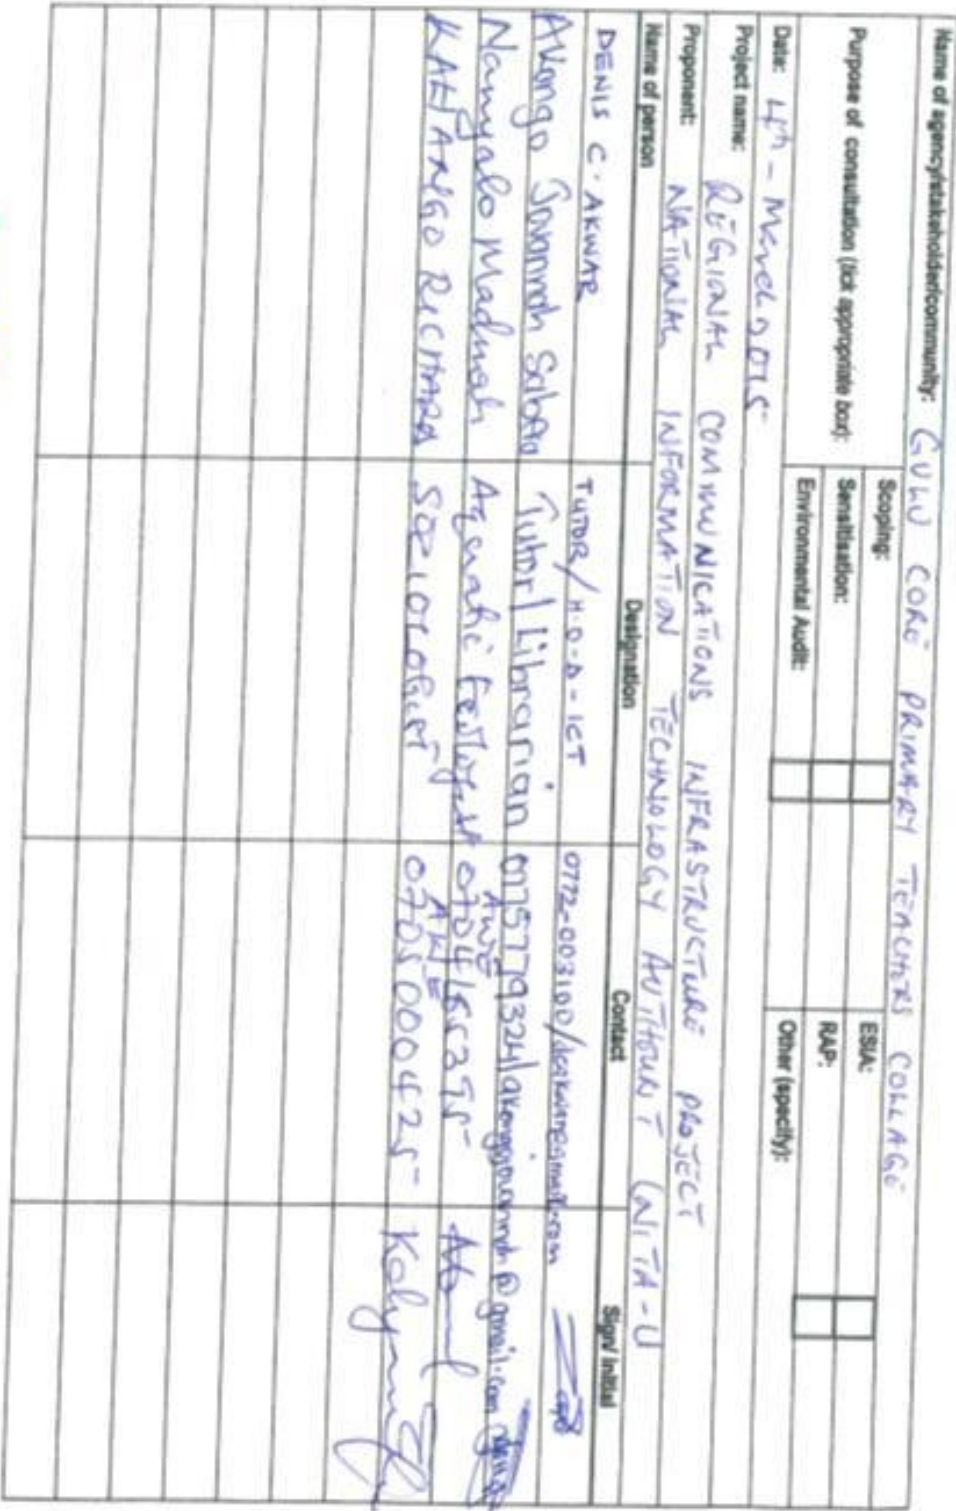 Name of agency/stakeholder/community: GULU CORE PRIMARY TEACHERS COLLAGE
Purpose of consultation (tick appropriate box): Scoping: ESIA:
Sensitisation: RAP:
Environmental Audit: Other (specify):
Date: 4th - March 2015
Project name: REGIONAL COMMUNICATIONS INFRASTRUCTURE PROJECT
Proponent: NATIONAL INFORMATION TECHNOLOGY AUTHORITY (NITA-U
Name of person Designation Contact Sign/ Initial
DENIS C. AKWAR TUTOR/H.O.D-ICT 0772-003100/
Akongo Jovannah Sabao Tutor/Librarian 0775779324/akongojovannah@gmail.com
Namyalo Madinah Aquatic AWE 0704155395
RICHARD SOCIOLOGIST AWE 0705000425